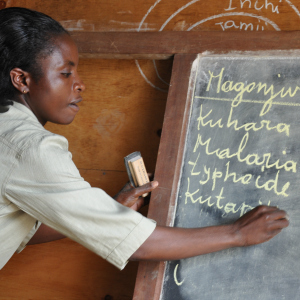 Inchi
Tamii
Magonjw
Kuhara
Malaria
typhoide
Kutapi